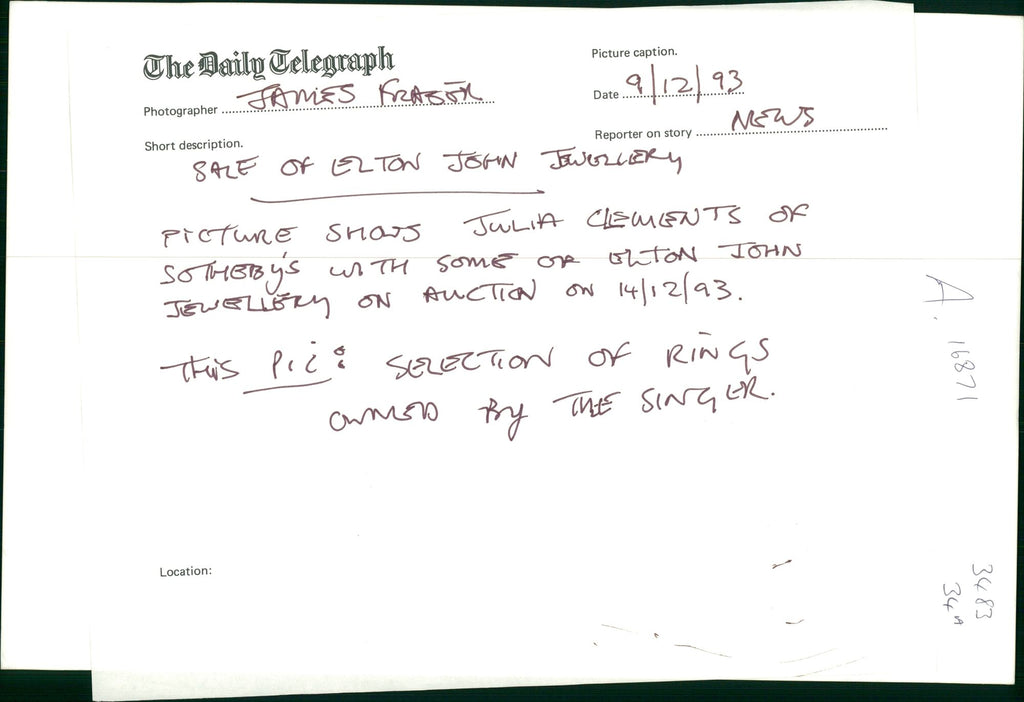 The Daily Telegraph
Picture caption.
Photographer JAMES FRASER
Date 9/12/93
Short description.
Reporter on story NEWS
SALE OF ELTON JOHN JEWELLERY
PICTURE SHOWS JULIA CLEMENTS OF
SOTHEBY'S WITH SOME OF ELTON JOHN
JEWELLERY ON AUCTION ON 14/12/93.
THIS PIC: SELECTION OF RINGS
OWNED BY THE SINGER.
Location:
A. 16871
3483
34A